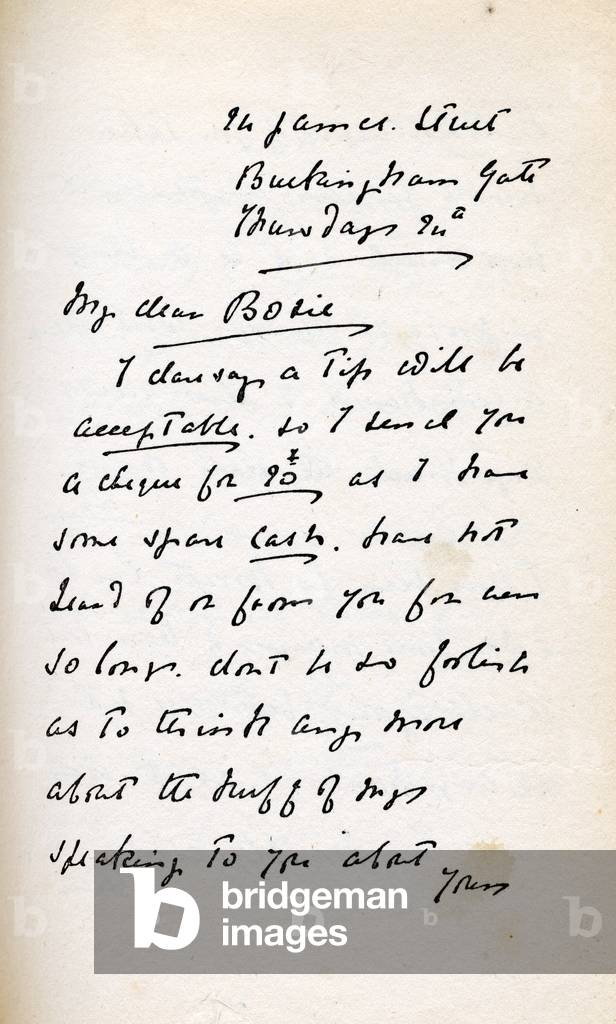 James. Street
Buckingham Gate
Thursday
My dear Bosie
I daresay a Tip will be
acceptable. so I send you
a cheque for as I have
some spare cash. have not
heard of or from you for ever
so long. dont be so foolish
as to think any more
about the huff of my
speaking to you about
your
b bridgeman
images